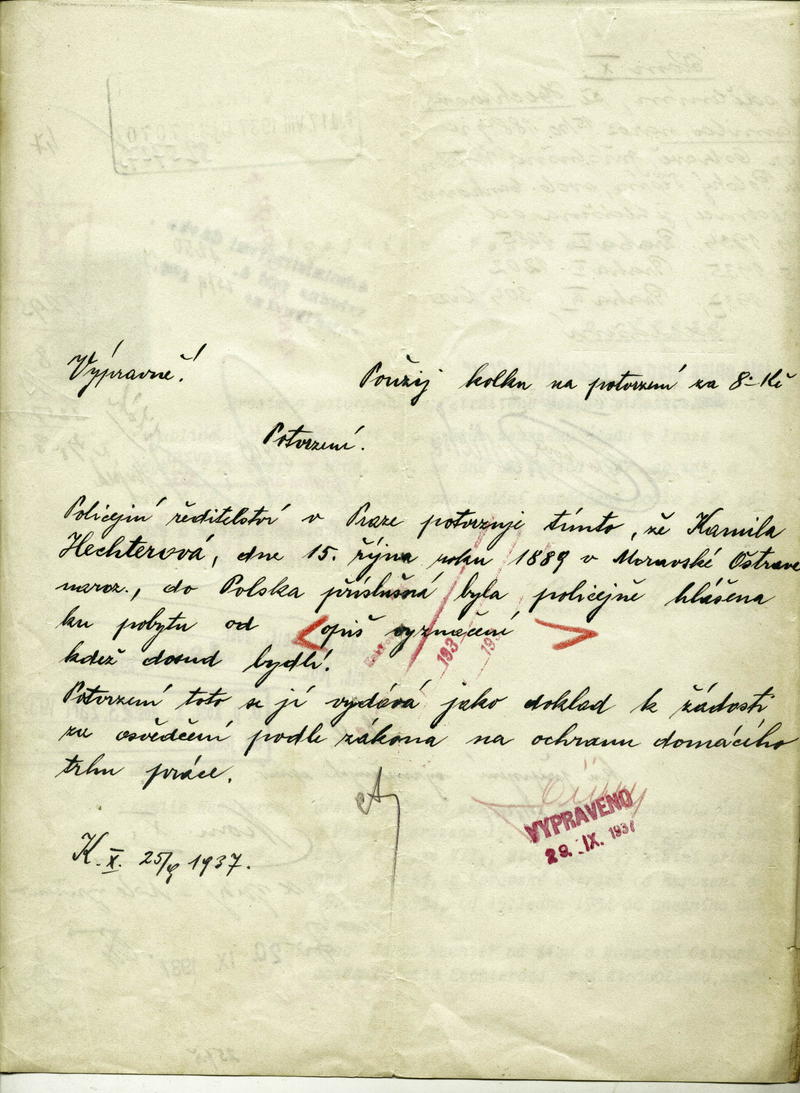 Výpravně!
Použij kolku na potvrzení za 8·- Kč
Potvrzení.
Policejní ředitelství v Praze potvrzuje tímto, že Kamila
Hechterová, dne 15. října roku 1889 v Moravské Ostravě
naroz., do Polska příslušná byla policejně hlášena
ku pobytu od < opiš vyznačení >
kdež dosud bydlí.
Potvrzení toto se jí vydává jako doklad k žádosti
za osvědčení podle zákona na ochranu domácího
trhu práce.
VYPRAVENO
29. IX. 1937
K. X. 25/9 1937.